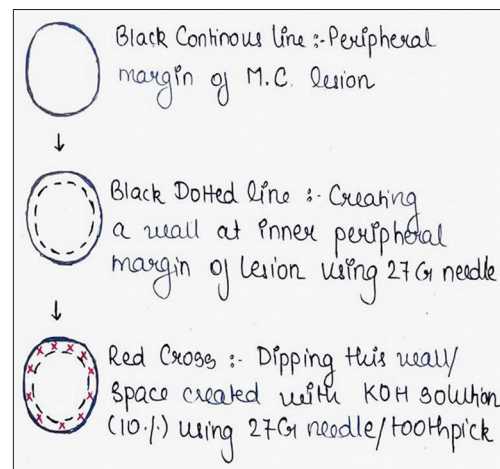 Black Continous line :- Peripheral
margin of M.C. lesion
Black Dotted line :- Creating
a wall at inner peripheral
margin of lesion using 27Gr needle
Red Cross :- Dipping this wall/
space created with KOH solution
(10%) using 27Gr needle/toothpick